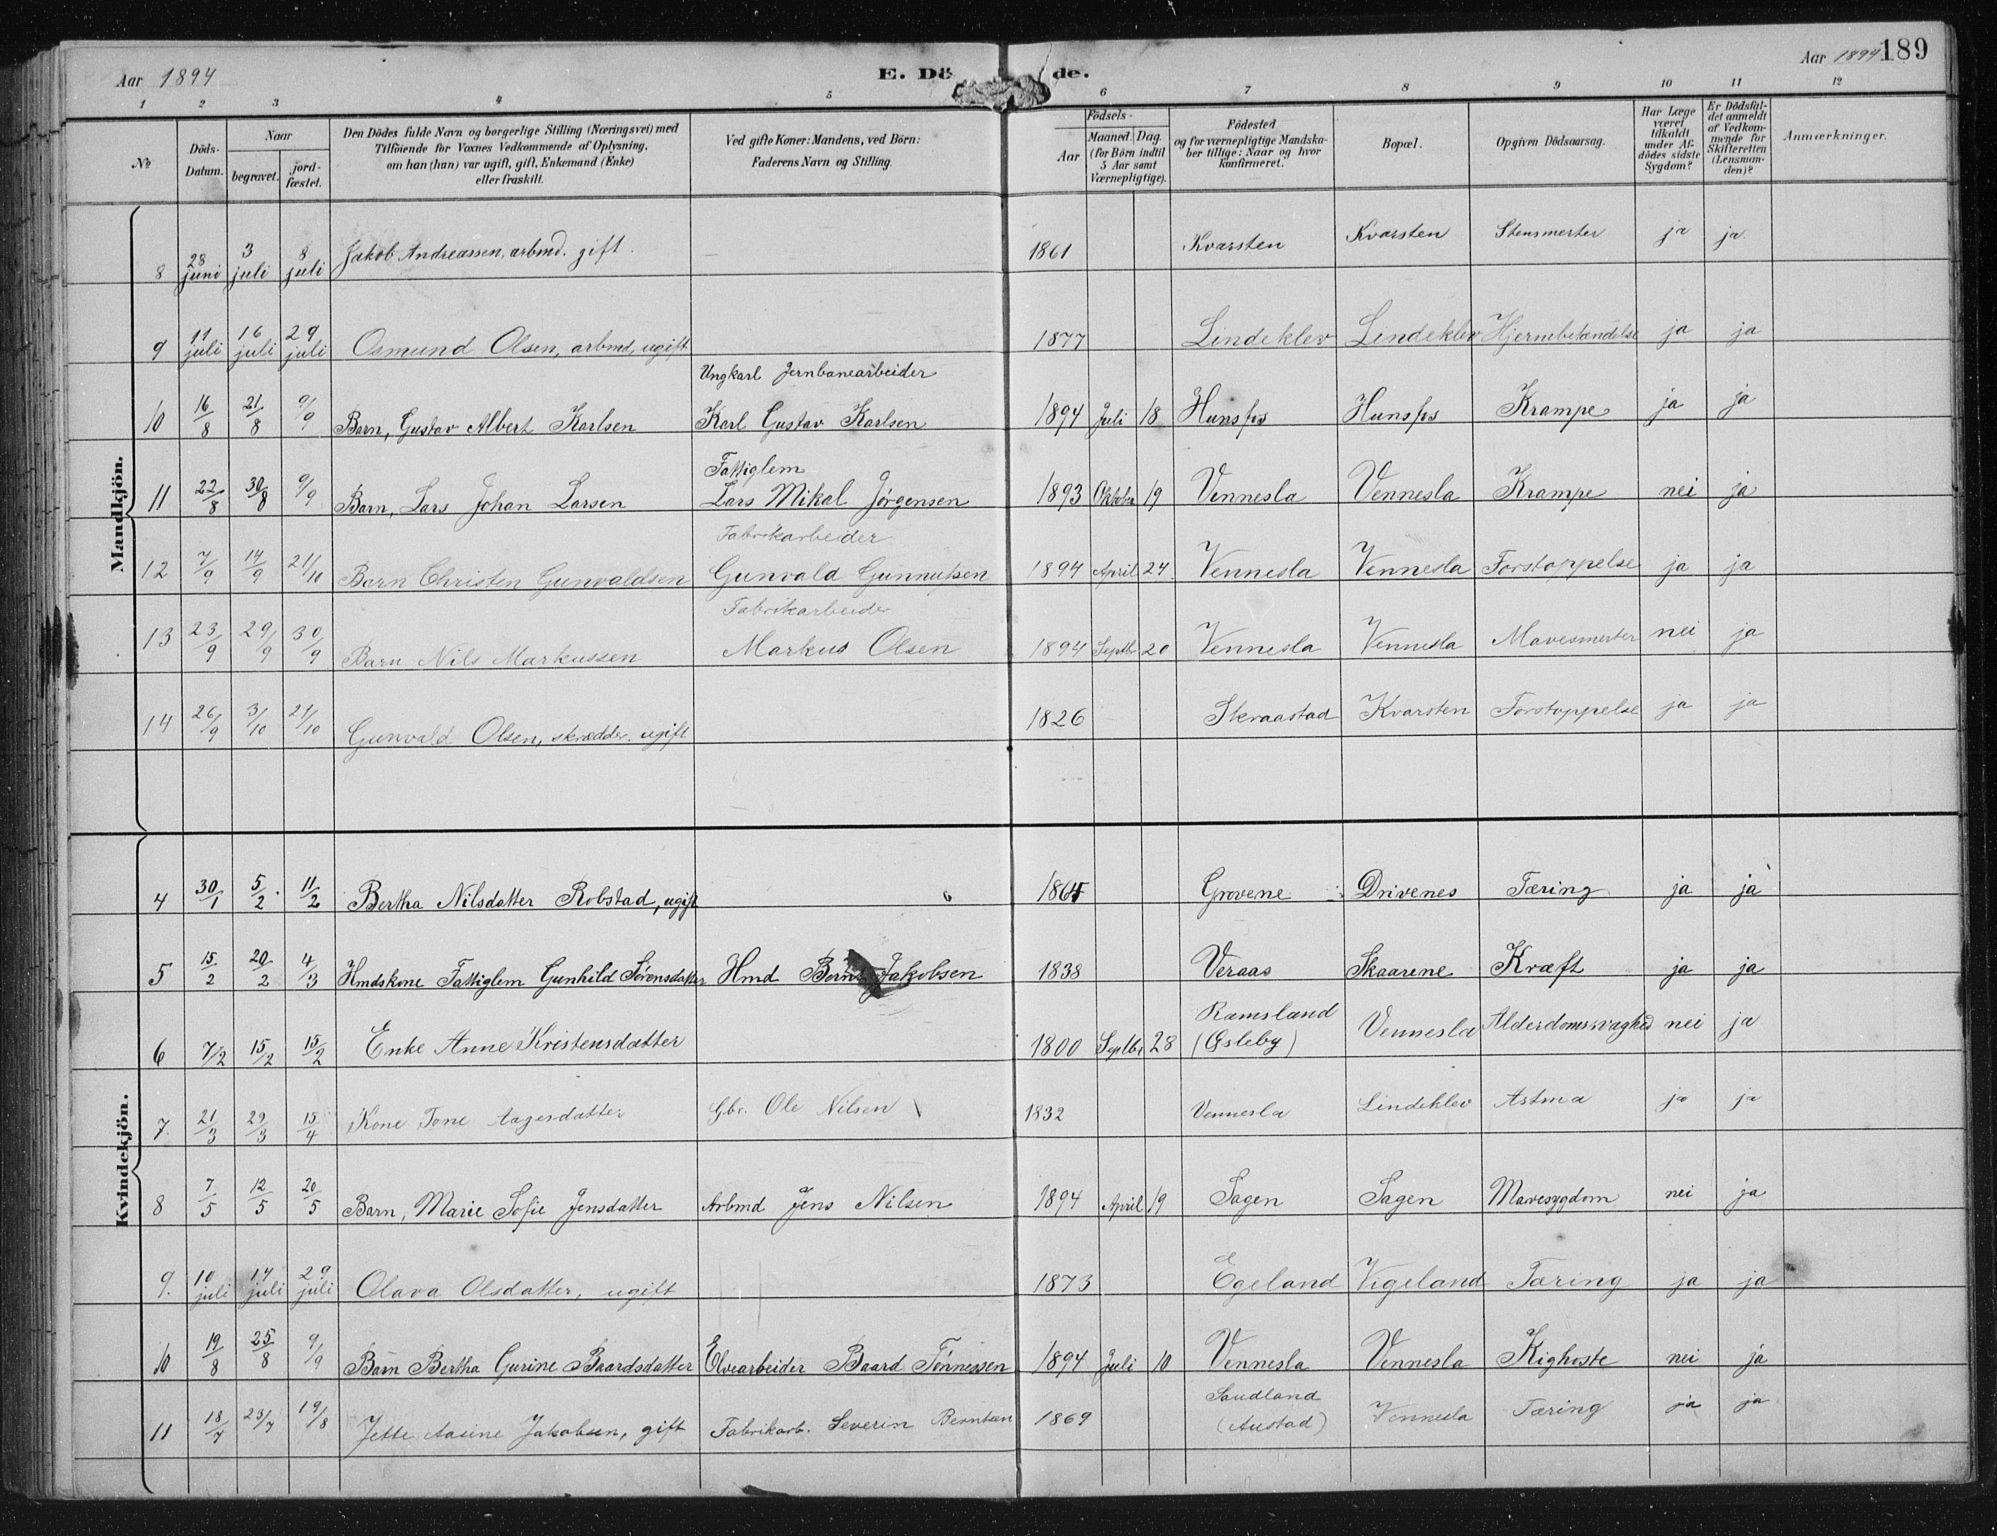 Aar 1894
E. Döde.
Aar 1894 189
1 2 3 4 5 6 7 8 9 10 11 12
No
Döds-Datum.
Naar
begravet.
jord-fæstet.
Den Dödes fulde Navn og borgerlige Stilling (Næringsvei) med
Tilföiende for Voxnes Vedkommende af Oplysning,
om han (hun) var ugift, gift, Enkemand (Enke)
eller fraskilt.
Ved gifte Koner: Mandens, ved Börn:
Faderens Navn og Stilling.
Födsels-
Aar
Maaned. Dag.
(for Börn indtil
5 Aar samt
Værnepligtige).
Födested
og for værnepligtige Mandska-
ber tillige: Naar og hvor
konfirmeret.
Bopæl.
Opgiven Dödsaarsag.
Har Læge
været
tilkaldt
under Af-
dödes sidste
Sygdom?
Er Dödsfal-
det anmeldt
af Vedkom-
mende for
Skifteretten
(Lensman-
den)?
Anmærkninger.
Mandkjön.
8 28 juni 3 juli 8 juli Jakob Andreassen, arbmd. gift 1861 Kvarsten Kvarsten Stensmerter ja ja
9 11 juli 16 juli 29 juli Osmund Olsen, arbmd, ugift 1877 Lindeklev Lindeklev Hjernebetændelse ja ja
Ungkarl Jernbanearbeider
10 16/8 21/8 9/9 Barn, Gustav Albert Karlsen Karl Gustav Karlsen 1894 Juli 18 Hunsfos Hunsfos Krampe ja ja
Fattiglem
11 22/8 30/8 9/9 Barn, Lars Johan Larsen Lars Mikal Jørgensen 1893 Oktober 19 Vennesla Vennesla Krampe nei ja
Fabrikarbeider
12 7/9 14/9 21/10 Barn Christen Gunvaldsen Gunvald Gunnufsen 1894 April 24 Vennesla Vennesla Forstoppelse ja ja
Fabrikarbeider
13 23/9 29/9 30/9 Barn Nils Markussen Markus Olsen 1894 Septbr 20 Vennesla Vennesla Mavesmerter nei ja
14 26/9 3/10 21/10 Gunvald Olsen, skrædder. ugift 1826 Skraastad Kvarsten Forstoppelse ja ja
Kvindekjön.
4 30/1 5/2 11/2 Bertha Nilsdatter Robstad, ugift Grovene Drivenes Tæring ja ja
5 15/2 20/2 4/3 Hmdskone Fattiglem Gunhild Sørensdatter Hmd Jakobsen 1838 Veraas Skaarene Kræft ja ja
6 7/2 15/2 15/2 Enke Anne Kristensdatter 1800 Septbr 28 Ramsland (Øsleby) Vennesla Alderdomssvaghed nei ja
7 21/3 29/3 15/4 Kone Tone Aagesdatter Gbr. Ole Nilsen 1832 Vennesla Lindeklev Astma ja ja
8 7/5 12/5 20/5 Barn, Marie Sofie Jensdatter Arbmd Jens Nilsen 1894 April 19 Sagen Sagen Mavesygdom nei ja
9. 10 juli 14 juli 29 juli Olava Olsdatter, ugift 1873 Egeland Vigeland Tæring ja ja
10 19/8 25/8 9/9 Barn Bertha Gurine Baardsdatter Elvearbeider Baard Tønnessen 1894 Juli 10 Vennesla Vennesla Kighoste nei ja
11 18/7 23/7 19/8 Jette Aasine Jakobsen, gift Fabrikarb. Severin Berntsen 1869 Saudland (Austad) Vennesla Tæring ja ja